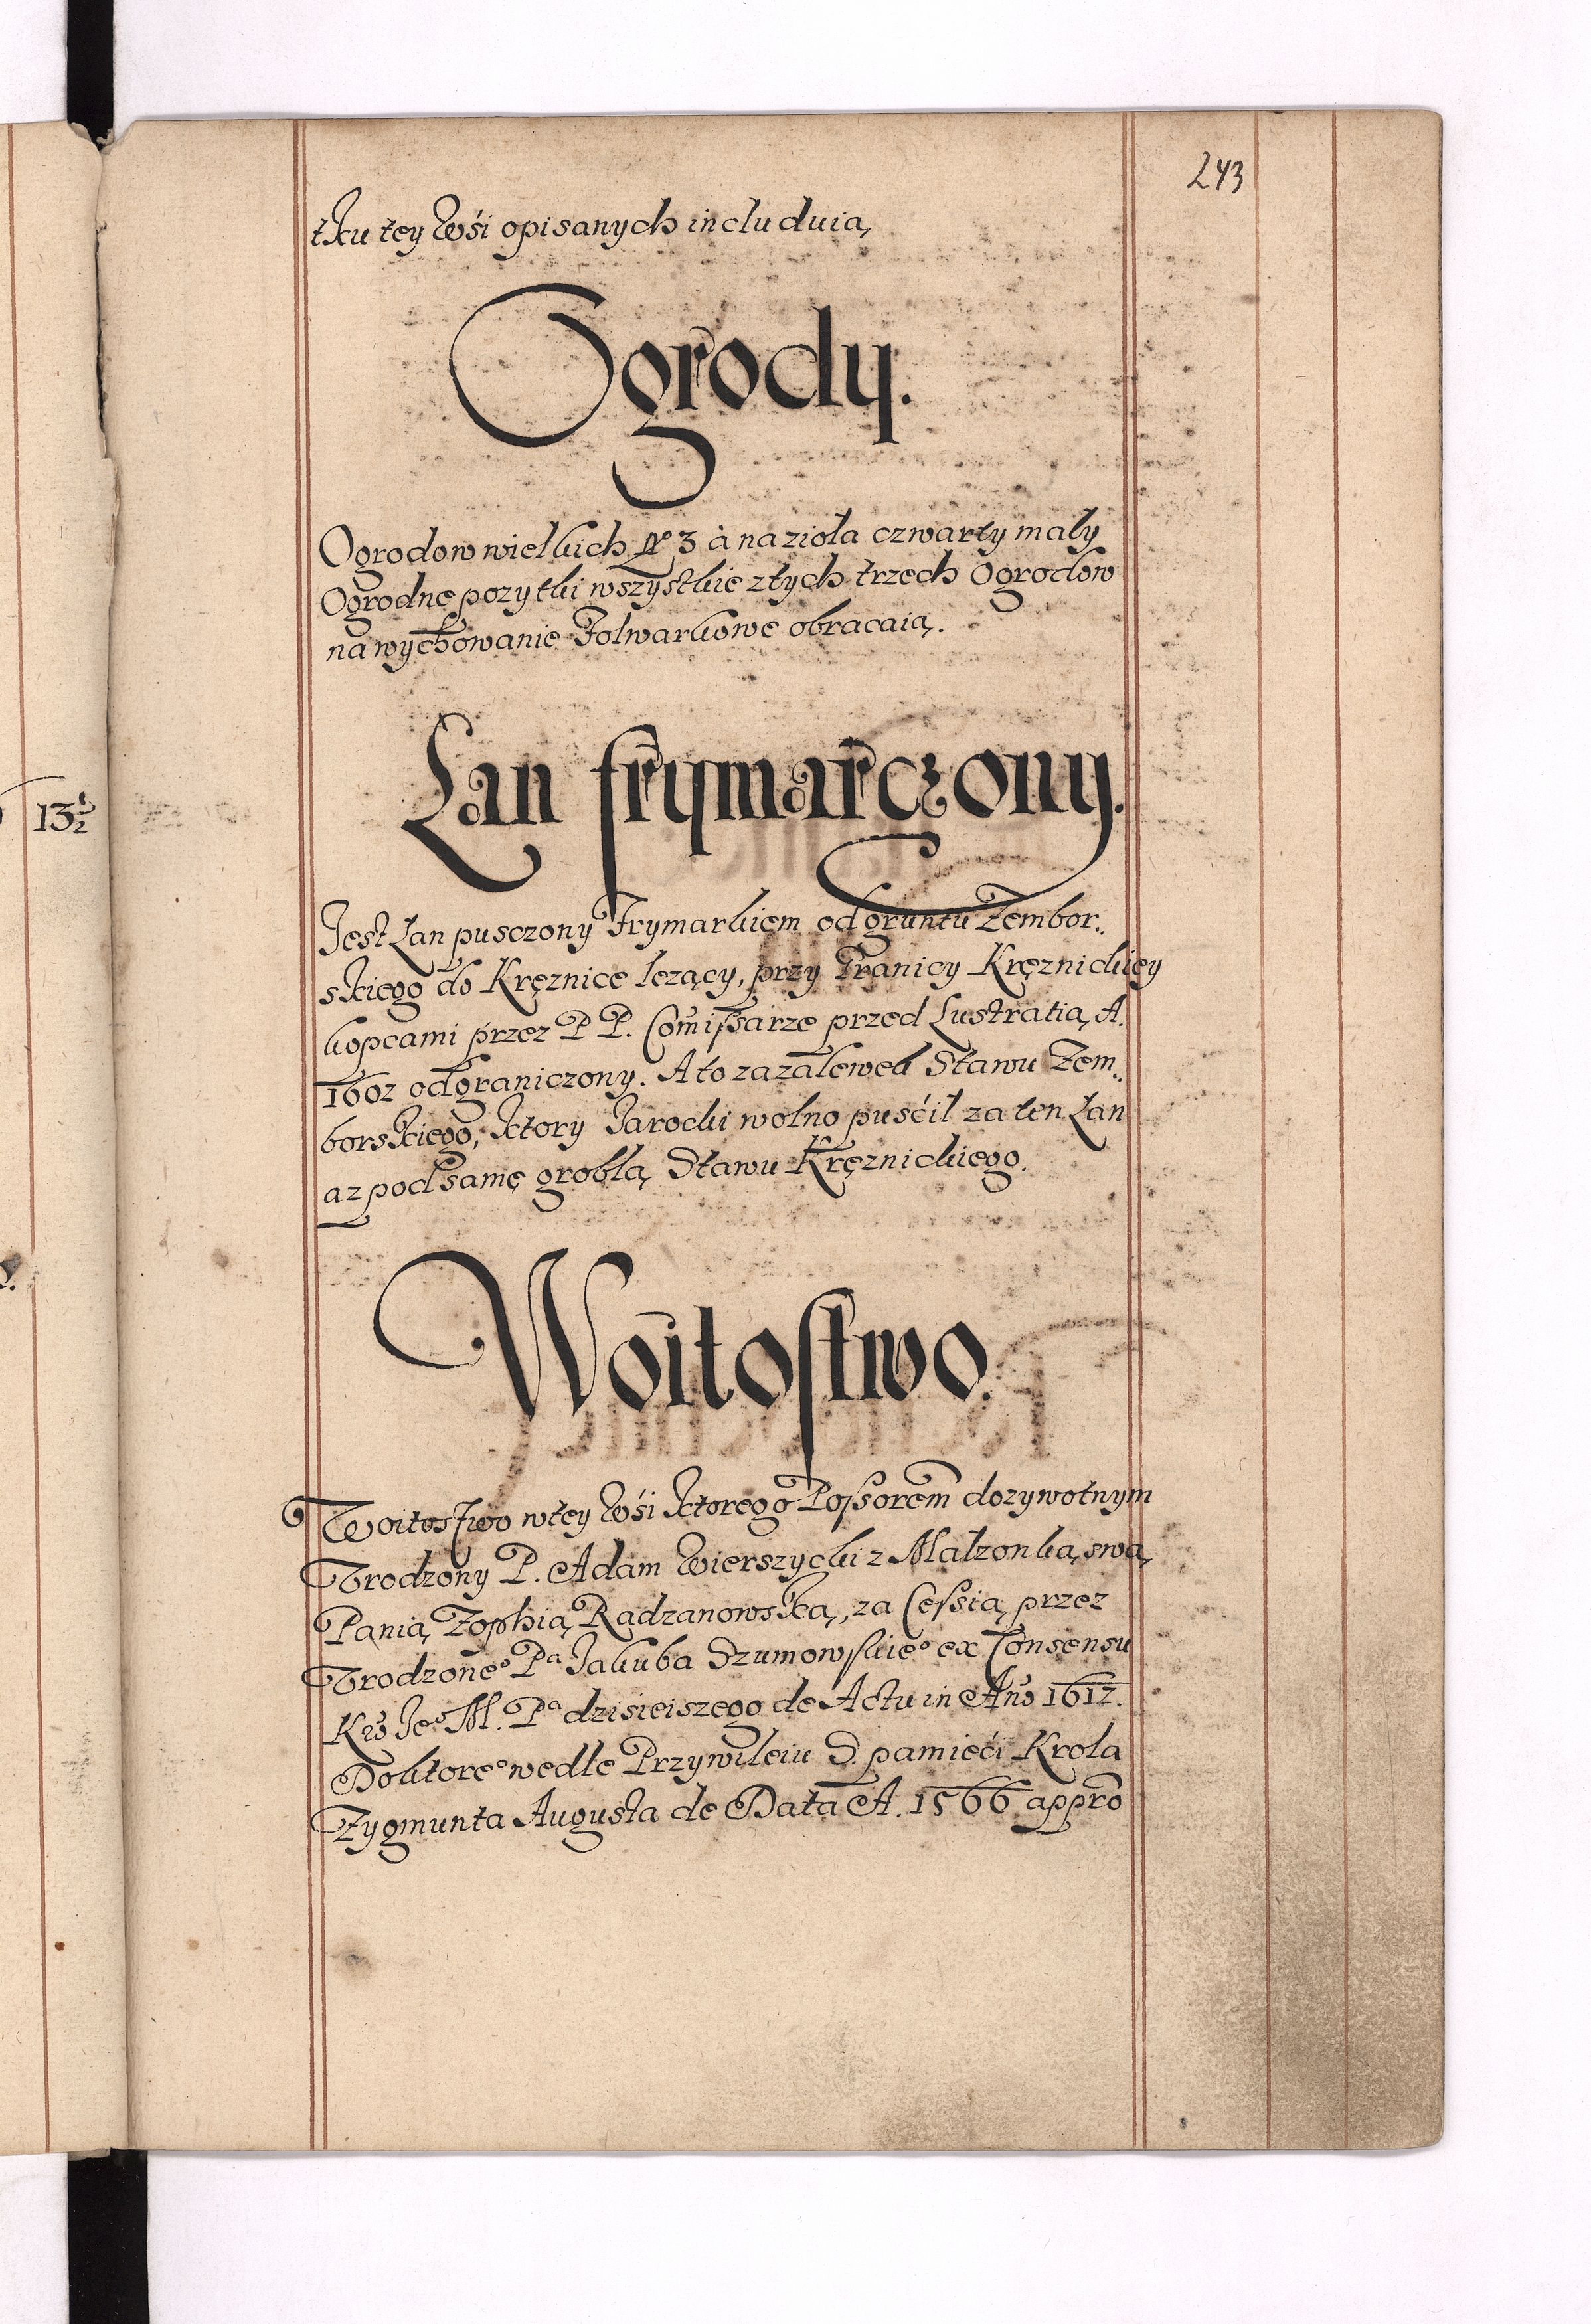 243
tku tey Wśi opisanych includuią
Ogrody.
Ogrodow wielkich N° 3 à na zioła czwarty mały
Ogrodne pozytki wszystkie z tych trzech Ogrodow
na wychowanie Folwarkowe obracaią.
Łan frymarczony.
Jest Łan pusczony Frymarkiem od gruntu Zembor„
skiego do Kręznice lezący, przy Granicy Kręznickiey
kopcami przez P P. Comissarze przed Lustratią A.
1602 odgraniczony. A to za zalewek Stawu Zem„
borskiego, ktory Jarocki wolno puśćił za ten Łan
az pod samę groblą Stawu Kręznickiego.
13½
Woitostwo.
Woitostwo w tey Wśi ktorego Possorem dozywotnym
Vrodzony P. Adam Wierszycki z Małzonką swą
Panią Zophią Radzanowską, za Cessią przez
Vrodzone° Pª Jakuba Szumowskie° ex Consensu
Kro Je° M. Pª dzisieiszego de Actu in Año 1617.
Doktore° wedle Przywileiu S. pamieći Krola
Zygmunta Augusta de Data A. 1566 appro